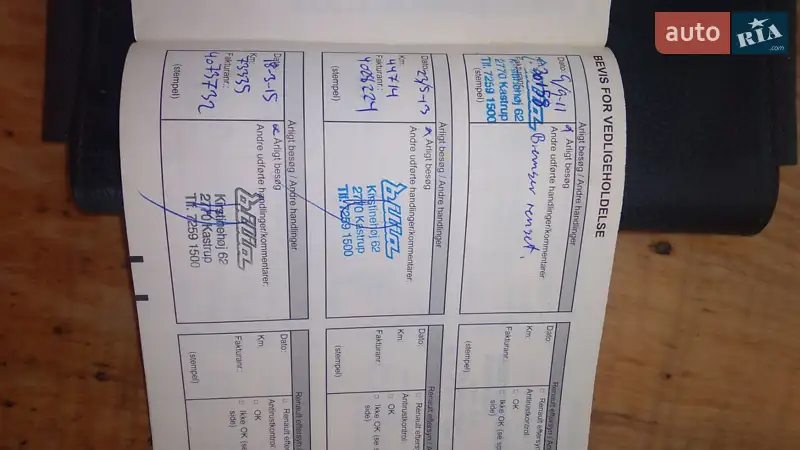 auto
RIA
.com
BEVIS FOR VEDLIGEHOLDELSE
Årligt besøg / Andre handlinger
Dato: 9/9-11
Årligt besøg
Andre udførte handlinger/kommentarer:
Bremser renset,
Kirstinehøj 62
2770 Kastrup
Tlf. 7259 1500
(stempel)
Årligt besøg / Andre handlinger
Dato: 23/5-13
Årligt besøg
Andre udførte handlinger/kommentarer:
Km: 44714
Fakturanr.:
4028224
(stempel)
Kirstinehøj 62
2770 Kastrup
Tlf. 7259 1500
Årligt besøg / Andre handlinger
Dato: 18-3-15
Årligt besøg
Andre udførte handlinger/kommentarer:
Km: 73335
Fakturanr.:
4073732
(stempel)
Kirstinehøj 62
2770 Kastrup
Tlf. 7259 1500
Renault eftersyn / An
Dato:
Renault eftersyn
Antirustkontrol:
Km:
OK
Fakturanr.:
Ikke OK (se
side)
(stempel)
Renault eftersyn / A
Dato:
Renault eftersyn
Antirustkontrol:
Km:
OK
Fakturanr.:
Ikke OK (se
side)
(stempel)
Renault eftersyn
Dato:
Renault eftersyn
Antirustkontrol:
Km:
OK
Fakturanr.:
Ikke OK (se
side)
(stempel)